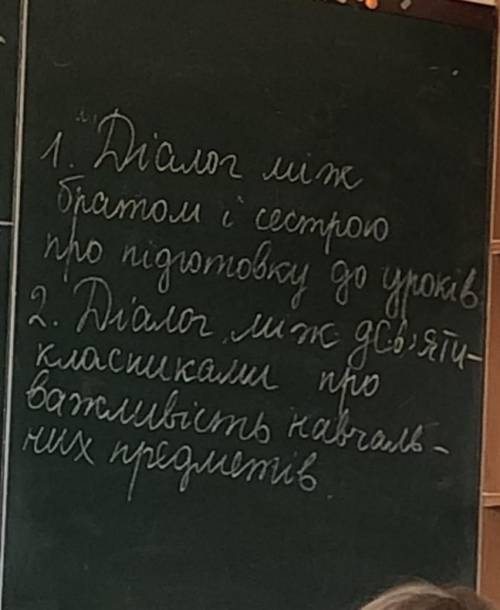 1. Діалог між
братом і сестрою
про підготовку до уроків
2. Діалог між дев'яти-
класниками про
важливість навчаль-
них предметів.